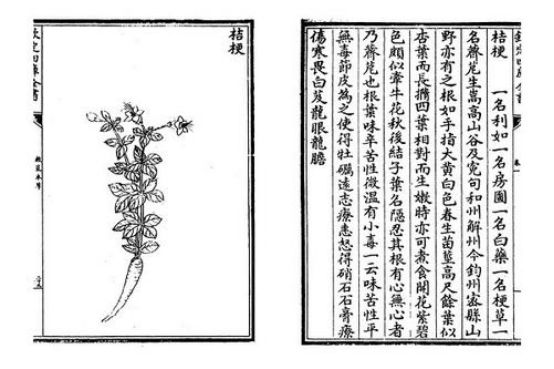 欽定四庫全書
卷一
桔梗　一名利如一名房圖一名白藥一名梗草一
名薺苨生嵩高山谷及冤句和州解州今鈞州密縣山
野亦有之根如手指大黃白色春生苗莖高尺餘葉似
杏葉而長撱四葉相對而生嫩時亦可煮食開花紫碧
色頗似牽牛花秋後結子葉名隱忍其根有心無心者
乃薺苨也根葉味辛苦性微溫有小毒一云味苦性平
無毒節皮為之使得牡礪遠志療恚怒得硝石石膏療
傷寒畏白芨龍眼龍膽
桔梗
欽定四庫全書
救荒本草